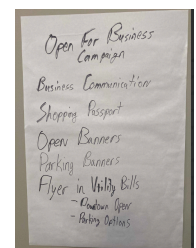 Open For Business
Campaign
Business Communication
Shopping Passport
Open Banners
Parking Banners
Flyer in Utility Bills
- Downtown Open
- Parking Options